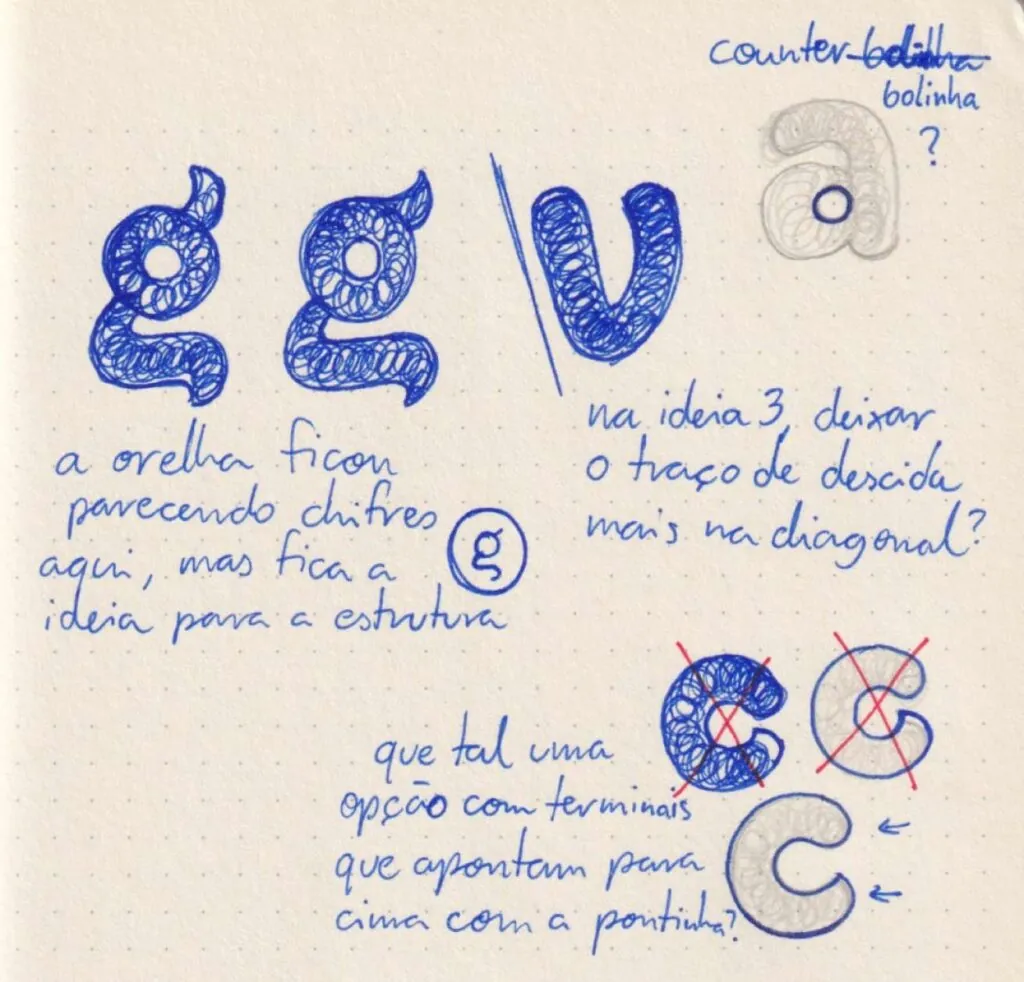 counter-bolinha
bolinha
?
a
g g v
a orelha ficou
parecendo chifres
aqui, mas fica a
ideia para a estrutura
g
na ideia 3, deixar
o traço de descida
mais na diagonal?
c c
c
que tal uma
opção com terminais
que apontam para
cima com a pontinha?